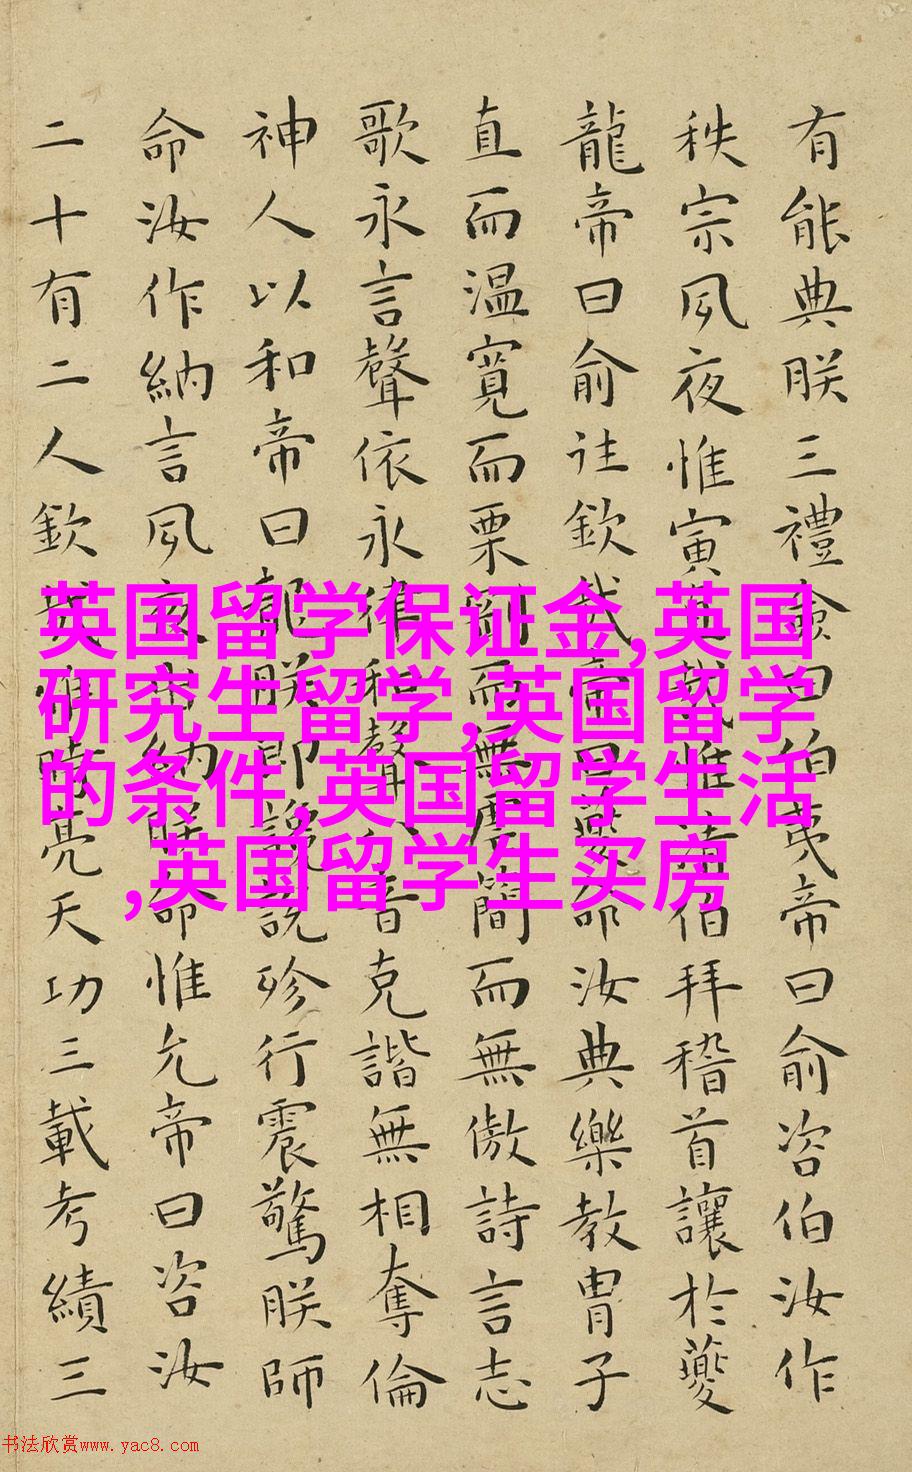 有能典朕三禮僉曰伯夷帝曰俞咨伯汝作
秩宗夙夜惟寅直哉惟清伯拜稽首讓於夔
龍帝曰俞往欽哉帝曰夔命汝典樂教冑子
直而温寬而栗剛而無虐簡而無傲詩言志
歌永言聲依永律和聲八音克諧無相奪倫
神人以和帝曰龍朕讒說殄行震驚朕師
命汝作納言夙夜出納朕命惟允帝曰咨汝
二十有二人欽哉惟時亮天功三載考績三
英国留学保证金,英国
研究生留学,英国留学
的条件,英国留学生活
,英国留学生买房
书法欣赏www.yac8.com